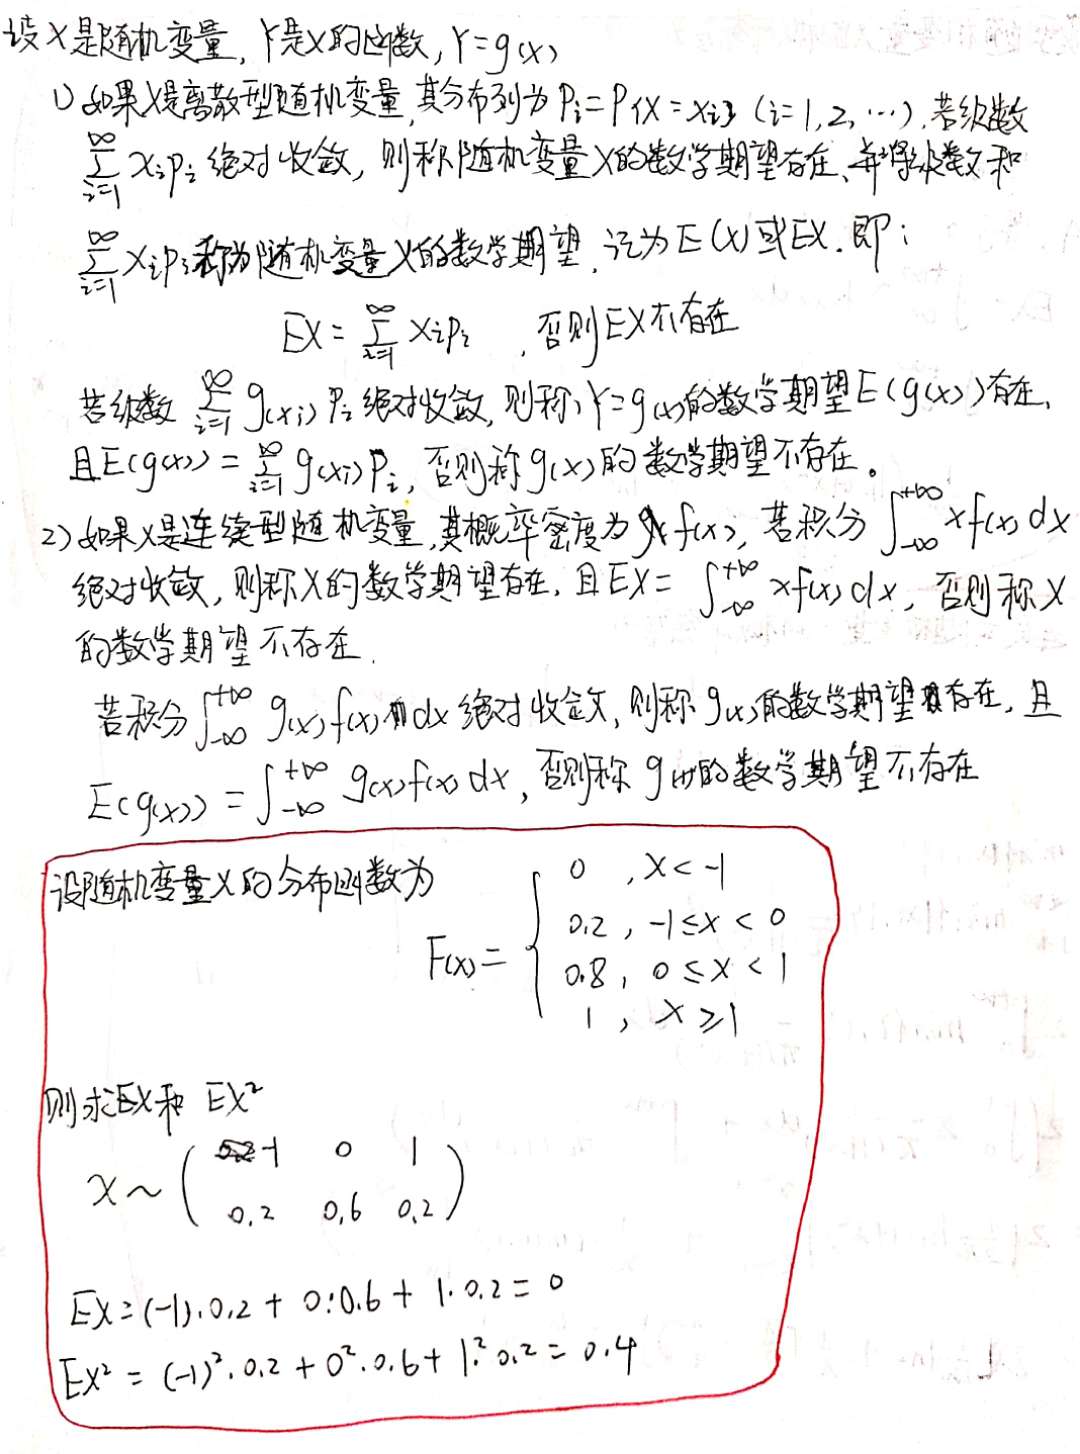 设X是随机变量, Y是X的函数, Y=g(x)
1) 如果X是离散型随机变量, 其分布列为 Pi=P{X=xi} (i=1,2,…), 若级数
∑_{i=1}^{∞} xipi 绝对收敛, 则称随机变量X的数学期望存在, 并将级数和
∑_{i=1}^{∞} xipi 称为随机变量X的数学期望, 记为E(X)或EX. 即:
EX = ∑_{i=1}^{∞} xipi , 否则EX不存在
若级数 ∑_{i=1}^{∞} g(xi) Pi 绝对收敛, 则称, Y=g(x)的数学期望E(g(x))存在,
且E(g(x)) = ∑_{i=1}^{∞} g(xi) Pi, 否则称 g(x) 的数学期望不存在。
2) 如果X是连续型随机变量, 其概率密度为 f(x), 若积分 ∫_{-∞}^{+∞} xf(x) dx
绝对收敛, 则称X的数学期望存在, 且EX = ∫_{-∞}^{+∞} xf(x) dx, 否则称X
的数学期望不存在.
若积分 ∫_{-∞}^{+∞} g(x) f(x) dx 绝对收敛, 则称 g(x)的数学期望存在, 且
E(g(x)) = ∫_{-∞}^{+∞} g(x) f(x) dx, 否则称 g(x)的数学期望不存在
设随机变量X的分布函数为
0 , x < -1
0.2 , -1 ≤ x < 0
F(x) =
0.8 , 0 ≤ x < 1
1 , x ≥ 1
则求EX和 EX²
-1 0 1
X ~
0.2 0.6 0.2
EX = (-1)·0.2 + 0·0.6 + 1·0.2 = 0
EX² = (-1)²·0.2 + 0²·0.6 + 1²·0.2 = 0.4